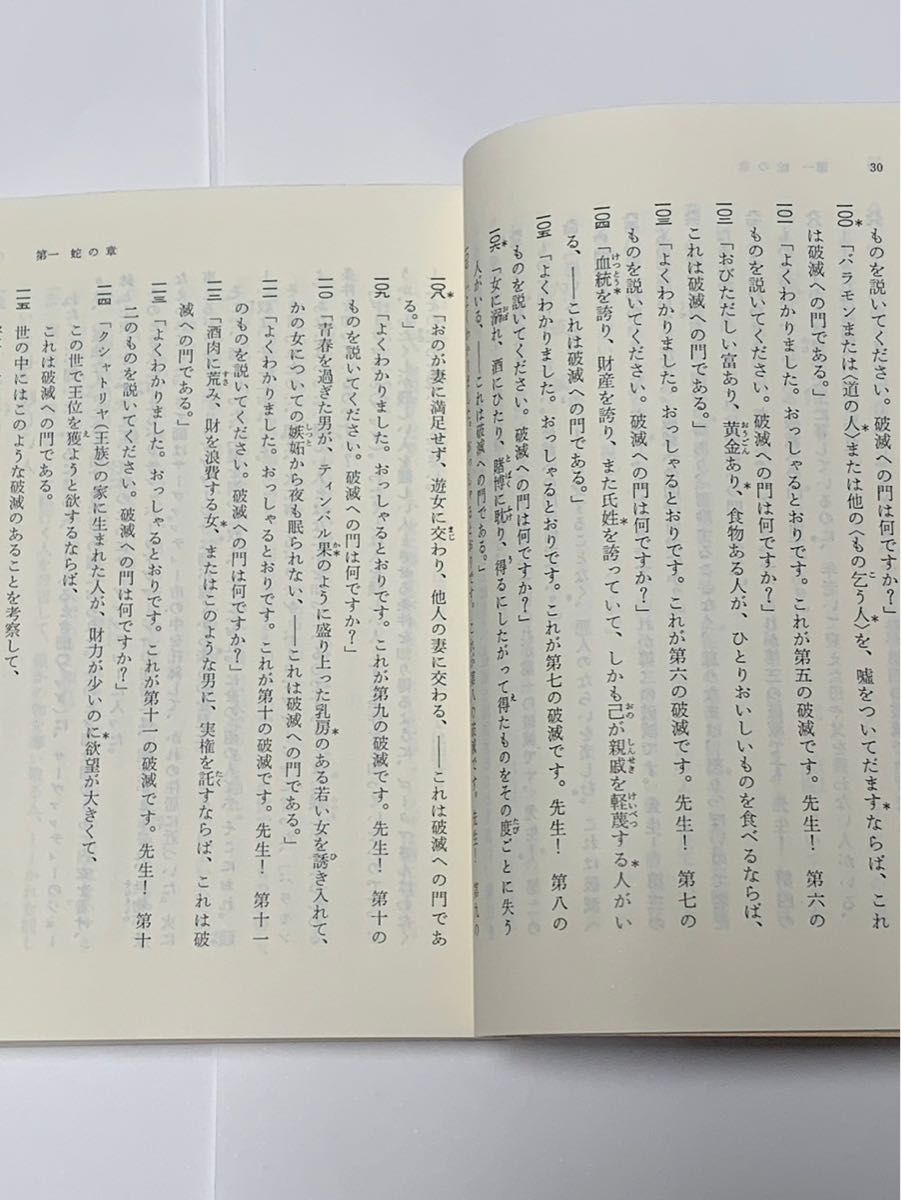 30
ものを説いてください。破滅への門は何ですか？」
一〇〇 「バラモンまたは〈道の人〉または他の〈もの乞う人〉を、嘘をついてだますならば、これ
は破滅への門である。」
一〇一 「よくわかりました。おっしゃるとおりです。これが第五の破滅です。先生！　第六の
ものを説いてください。破滅への門は何ですか？」
一〇二 「おびただしい富あり、黄金あり、食物ある人が、ひとりおいしいものを食べるならば、
これは破滅への門である。」
一〇三 「よくわかりました。おっしゃるとおりです。これが第六の破滅です。先生！　第七の
ものを説いてください。破滅への門は何ですか？」
一〇四 「血統を誇り、財産を誇り、また氏姓を誇っていて、しかも己が親戚を軽蔑する人がい
る、——これは破滅への門である。」
一〇五 「よくわかりました。おっしゃるとおりです。これが第七の破滅です。先生！　第八の
ものを説いてください。破滅への門は何ですか？」
一〇六 「女に溺れ、酒にひたり、賭博に耽り、得るにしたがって得たものをその度ごとに失う
人がいる、——これは破滅への門である。」
第一　蛇の章
一〇八 「おのが妻に満足せず、遊女に交わり、他人の妻に交わる、——これは破滅への門であ
る。」
一〇九 「よくわかりました。おっしゃるとおりです。これが第九の破滅です。先生！　第十の
ものを説いてください。破滅への門は何ですか？」
一一〇 「青春を過ぎた男が、ティンバル果のように盛り上った乳房のある若い女を誘き入れて、
かの女についての嫉妬から夜も眠られない、——これは破滅への門である。」
一一一 「よくわかりました。おっしゃるとおりです。これが第十の破滅です。先生！　第十一
のものを説いてください。破滅への門は何ですか？」
一一二 「酒肉に荒み、財を浪費する女、またはこのような男に、実権を託すならば、これは破
滅への門である。」
一一三 「よくわかりました。おっしゃるとおりです。これが第十一の破滅です。先生！　第十
二のものを説いてください。破滅への門は何ですか？」
一一四 「クシャトリヤ（王族）の家に生まれた人が、財力が少いのに欲望が大きくて、
この世で王位を獲ようと欲するならば、
これは破滅への門である。
一一五 世の中にはこのような破滅のあることを考察して、